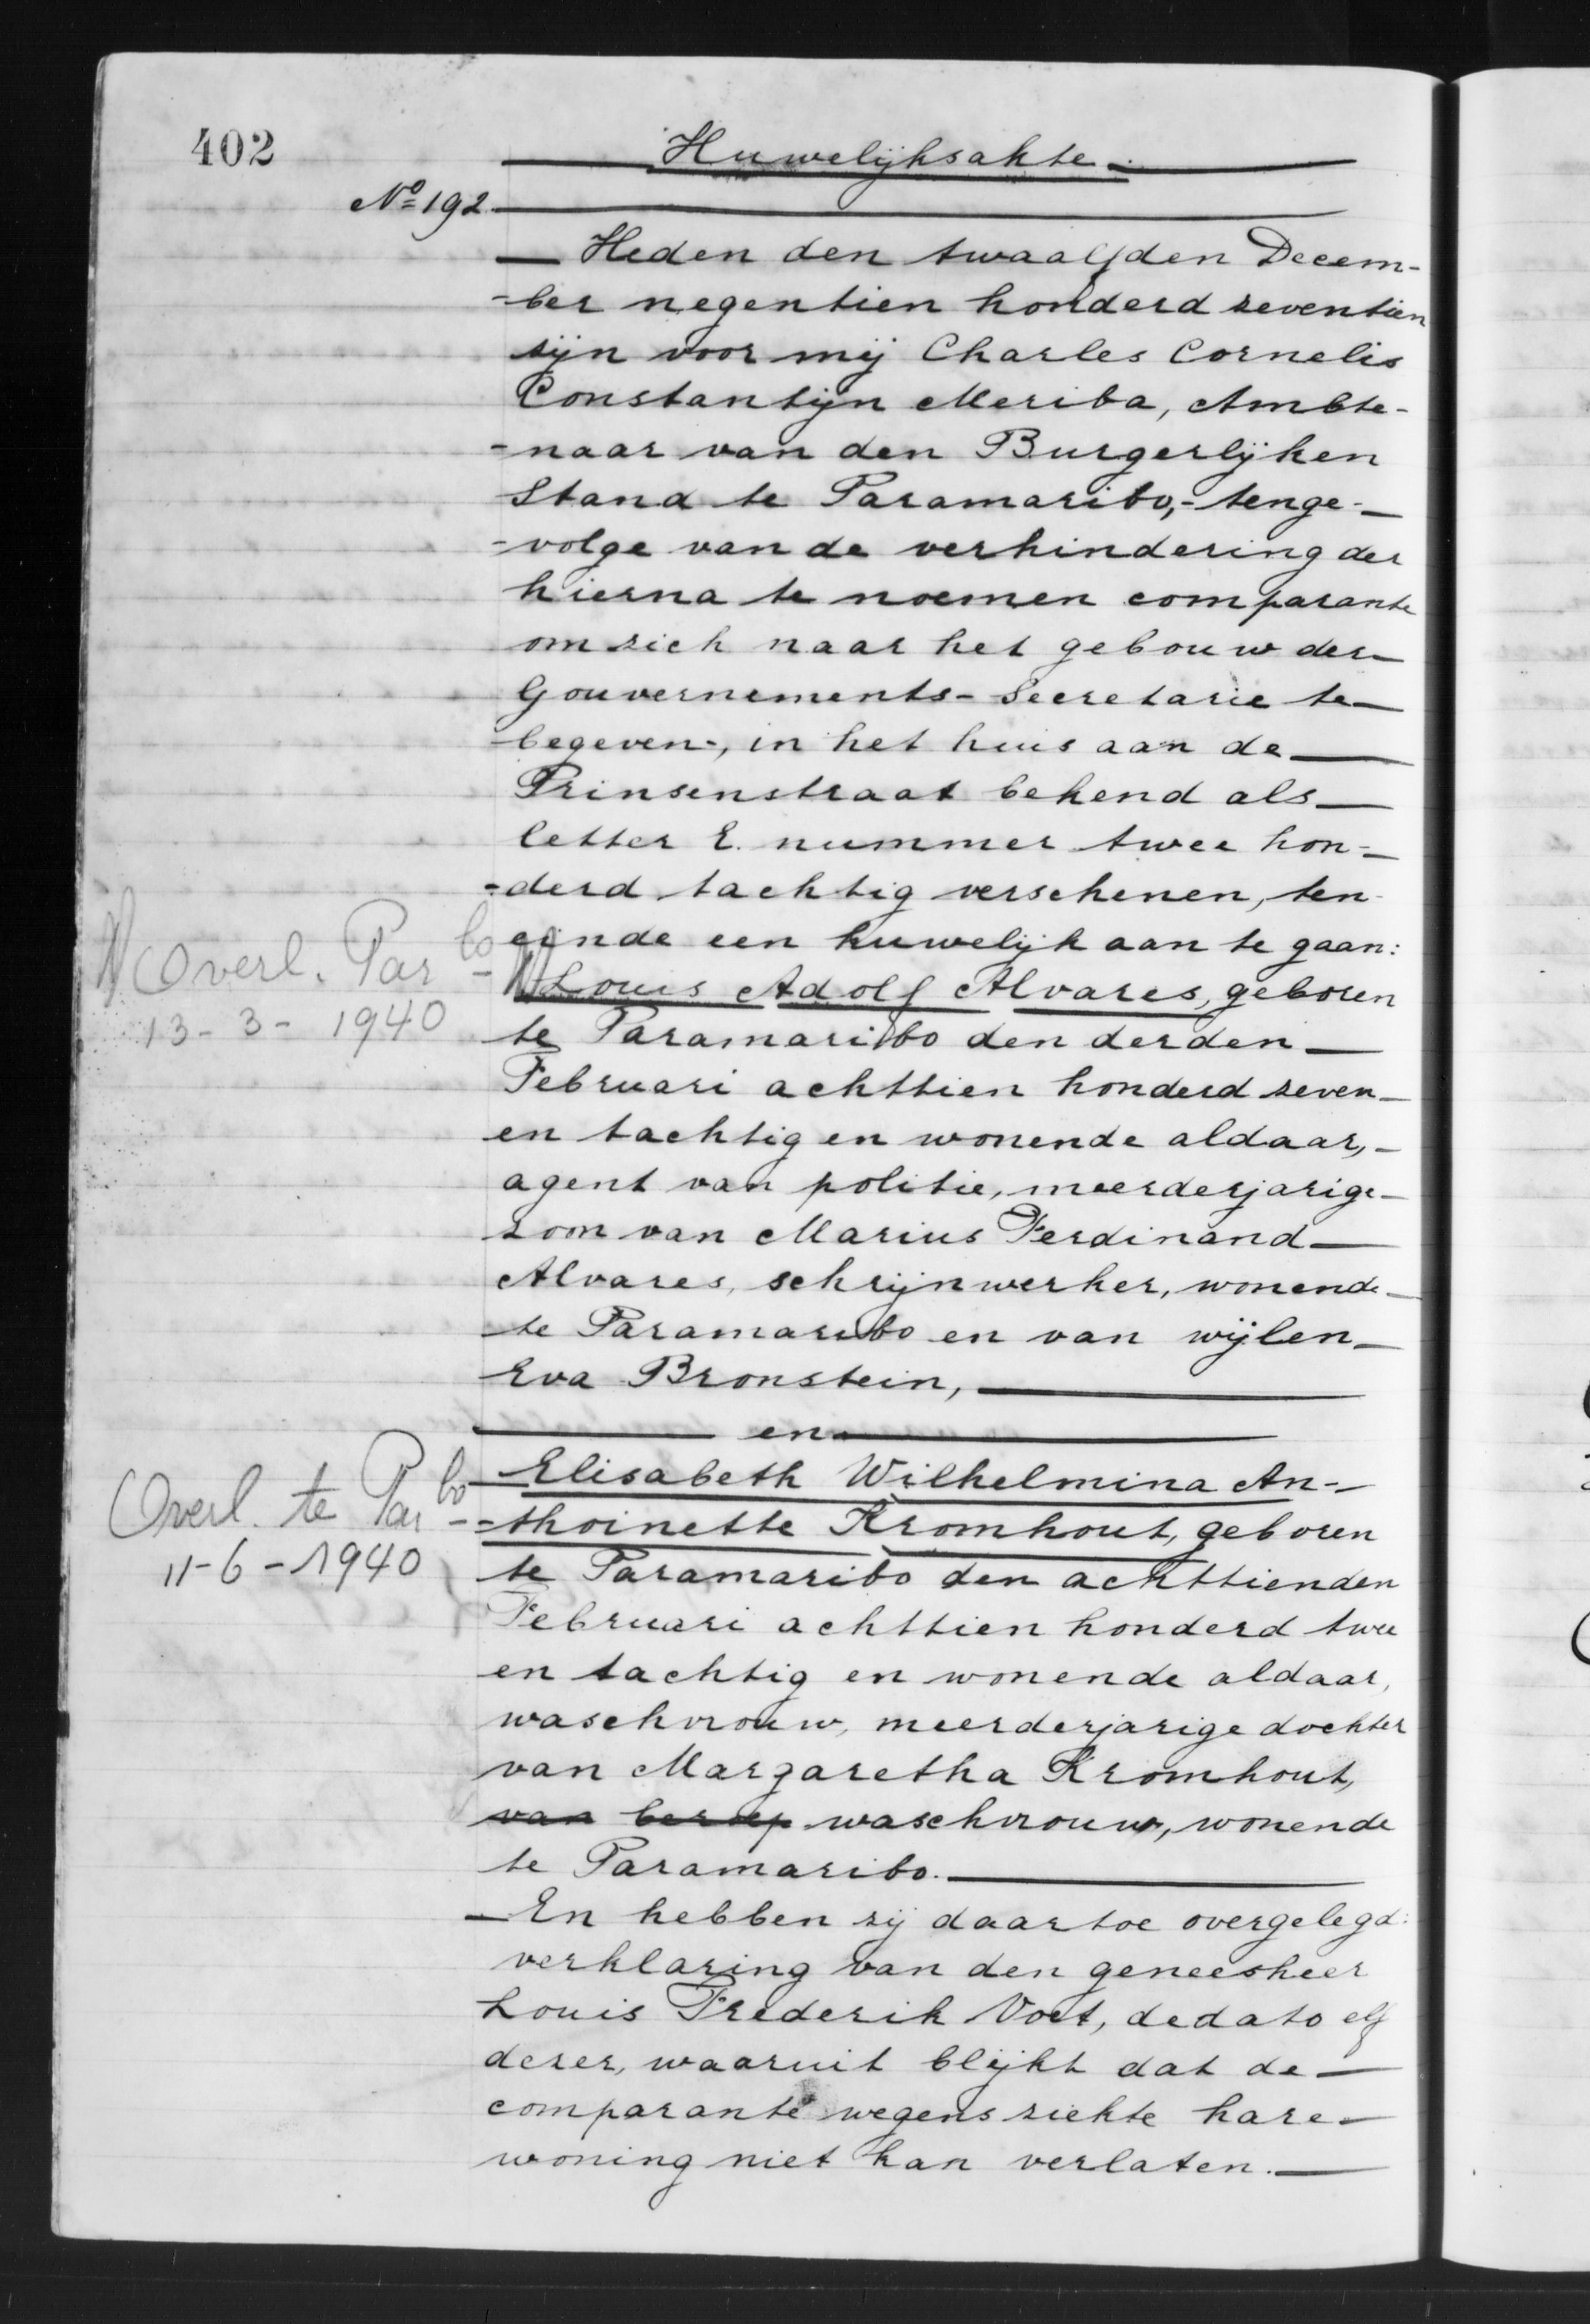 402
Huwelijksakte.
No 192.
Heden den twaalfden Decem-
-ber negentien honderd zeventien
zijn voor mij Charles Cornelis
Constantijn Meriba, Ambte-
-naar van den Burgerlijken
Stand te Paramaribo,- tenge-
-volge van de verhindering der
hierna te noemen comparante
om zich naar het gebouw der
Gouvernements-Secretarie te
begeven-, in het huis aan de
Prinsenstraat bekend als
letter E. nummer twee hon-
-derd tachtig verschenen, ten
einde een huwelijk aan te gaan:
Overl. Parbo
13-3-1940
Louis Adolf Alvares, geboren
te Paramaribo den derden
Februari achttien honderd zeven
en tachtig en wonende aldaar,
agent van politie, meerderjarige
zoon van Marius Ferdinand
Alvares, schrijnwerker, wonende
te Paramaribo en van wijlen
Eva Bronstein,
en
Overl. te Parbo
11-6-1940
Elisabeth Wilhelmina An-
-thoinette Kromhout, geboren
te Paramaribo den achttienden
Februari achttien honderd twee
en tachtig en wonende aldaar,
waschvrouw, meerderjarige dochter
van Margaretha Kromhout,
van beroep waschvrouw, wonende
te Paramaribo.
En hebben zij daartoe overgelegd:
verklaring van den geneesheer
Louis Frederik Voet, dedato elf
dezer, waaruit blijkt dat de
comparante wegens ziekte hare
woning niet kan verlaten.